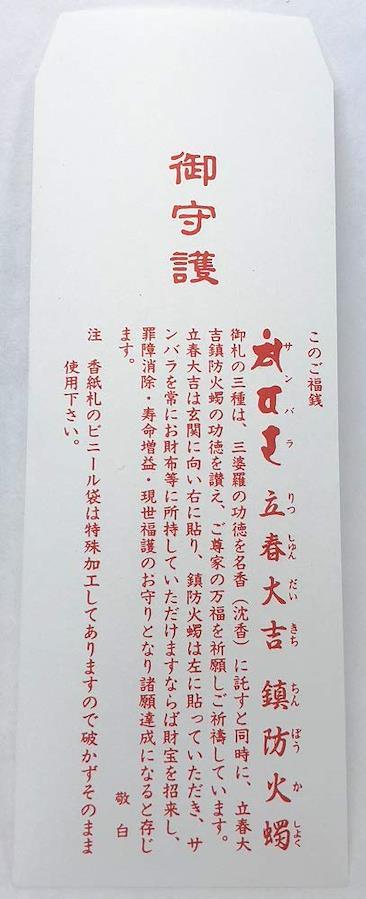 御守護
このご福銭
サンバラ 立春大吉 鎮防火蠋
りつ しゅん だい きち ちん ぼう か しょく
御札の三種は、三婆羅の功徳を名香（沈香）に託すと同時に、立春大
吉鎮防火蠋の功徳を讃え、ご尊家の万福を祈願しご祈禱しています。
立春大吉は玄関に向い右に貼り、鎮防火蠋は左に貼っていただき、サ
ンバラを常にお財布等に所持していただけますならば財宝を招来し、
罪障消除・寿命増益・現世福護のお守りとなり諸願達成になると存じ
ます。
敬白
注 香紙札のビニール袋は特殊加工してありますので破かずそのまま
使用下さい。